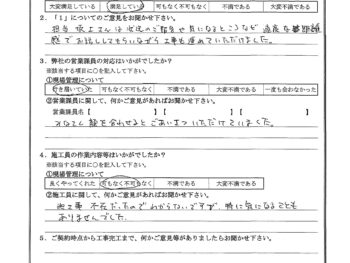 大変満足している 満足している 可もなく不可もなく 不満である 大変不満である
2．「1」についてのご意見をお聞かせ下さい。
担当 坂上さんは 近況のご報告や気になるところなど 適度な距離
感でお話ししてもらいながら工事も進めていただけました。
3．弊社の営業課員の対応はいかがでしたか？
※該当する項目に○を記入して下さい。
①現場管理について
行き届いていた 可もなく不可もなく 不満である 大変不満である 一度も会わなかった
②営業課員に関して、何かご意見があればお聞かせ下さい。
営業員名【 】 営業員名【 】
みなさん 顔を合わせるとごあいさつ いただけていました。
4．施工員の作業内容等はいかがでしたか？
※該当する項目に○を記入して下さい。
①現場管理について
良くやってくれた 可もなく不可もなく 不満である 大変不満である
②施工員に関して、何かご意見があればお聞かせ下さい。
施工事 不在だったのでわからないですが、特に気になることも
ありませんでした。
5．ご契約時点から工事完工まで、何かご意見等がありましたらお聞かせ下さい。